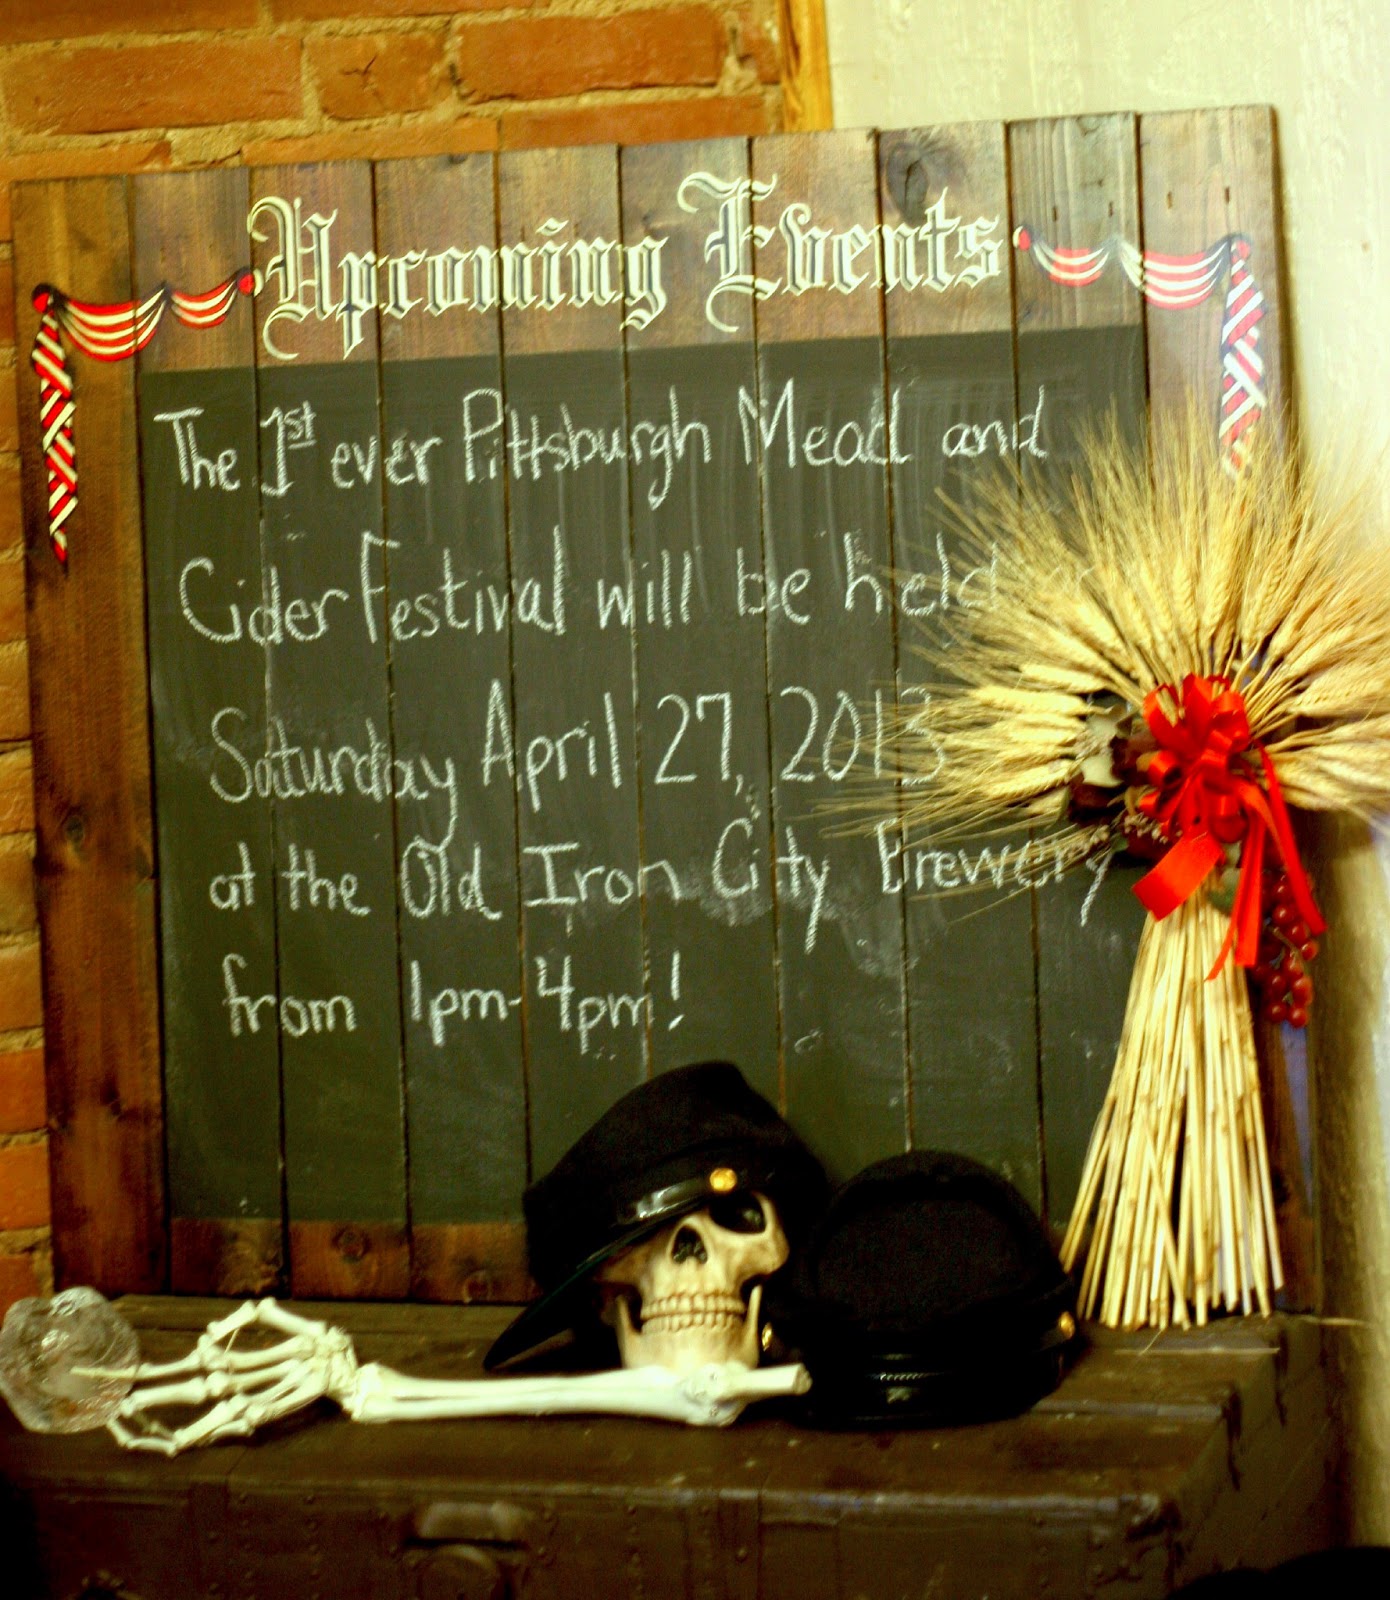 Upcoming Events
The 1st ever Pittsburgh Mead and
Cider Festival will be held
Saturday April 27, 2013
at the Old Iron City Brewery
from 1pm-4pm!